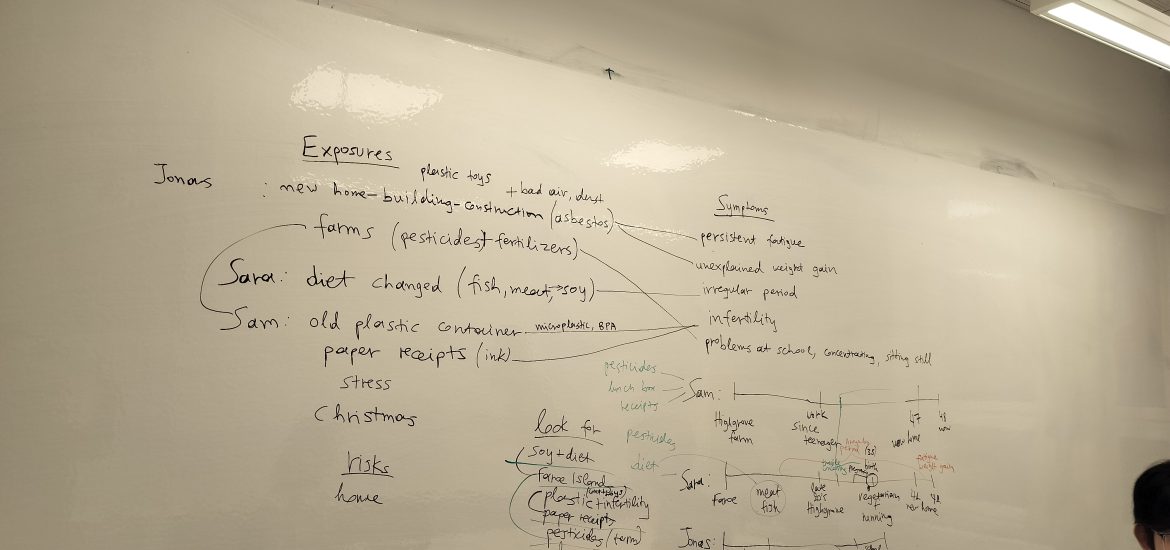 Exposures
plastic toys
Jonas : new home-building-construction (asbestos)
+ bad air, dust
farms (pesticides + fertilizers)
Sara: diet changed (fish, meat → soy)
Sam: old plastic container microplastic, BPA
paper receipts (ink)
stress
Christmas
risks
home
Symptoms
persistent fatigue
unexplained weight gain
irregular period
infertility
problems at school, concentrating, sitting still
look for
soy + diet
faroe island
plastic + infertility
paper receipts
pesticides
pesticides
lunch box
receipts
Sam:
Highgrove farm
work since teenager
47 new home
48 now
pesticides
diet
Sara:
faroe
meat fish
late 30's Highgrove
vegetarian + running
new home
irregular period
weight gain
Jonas: